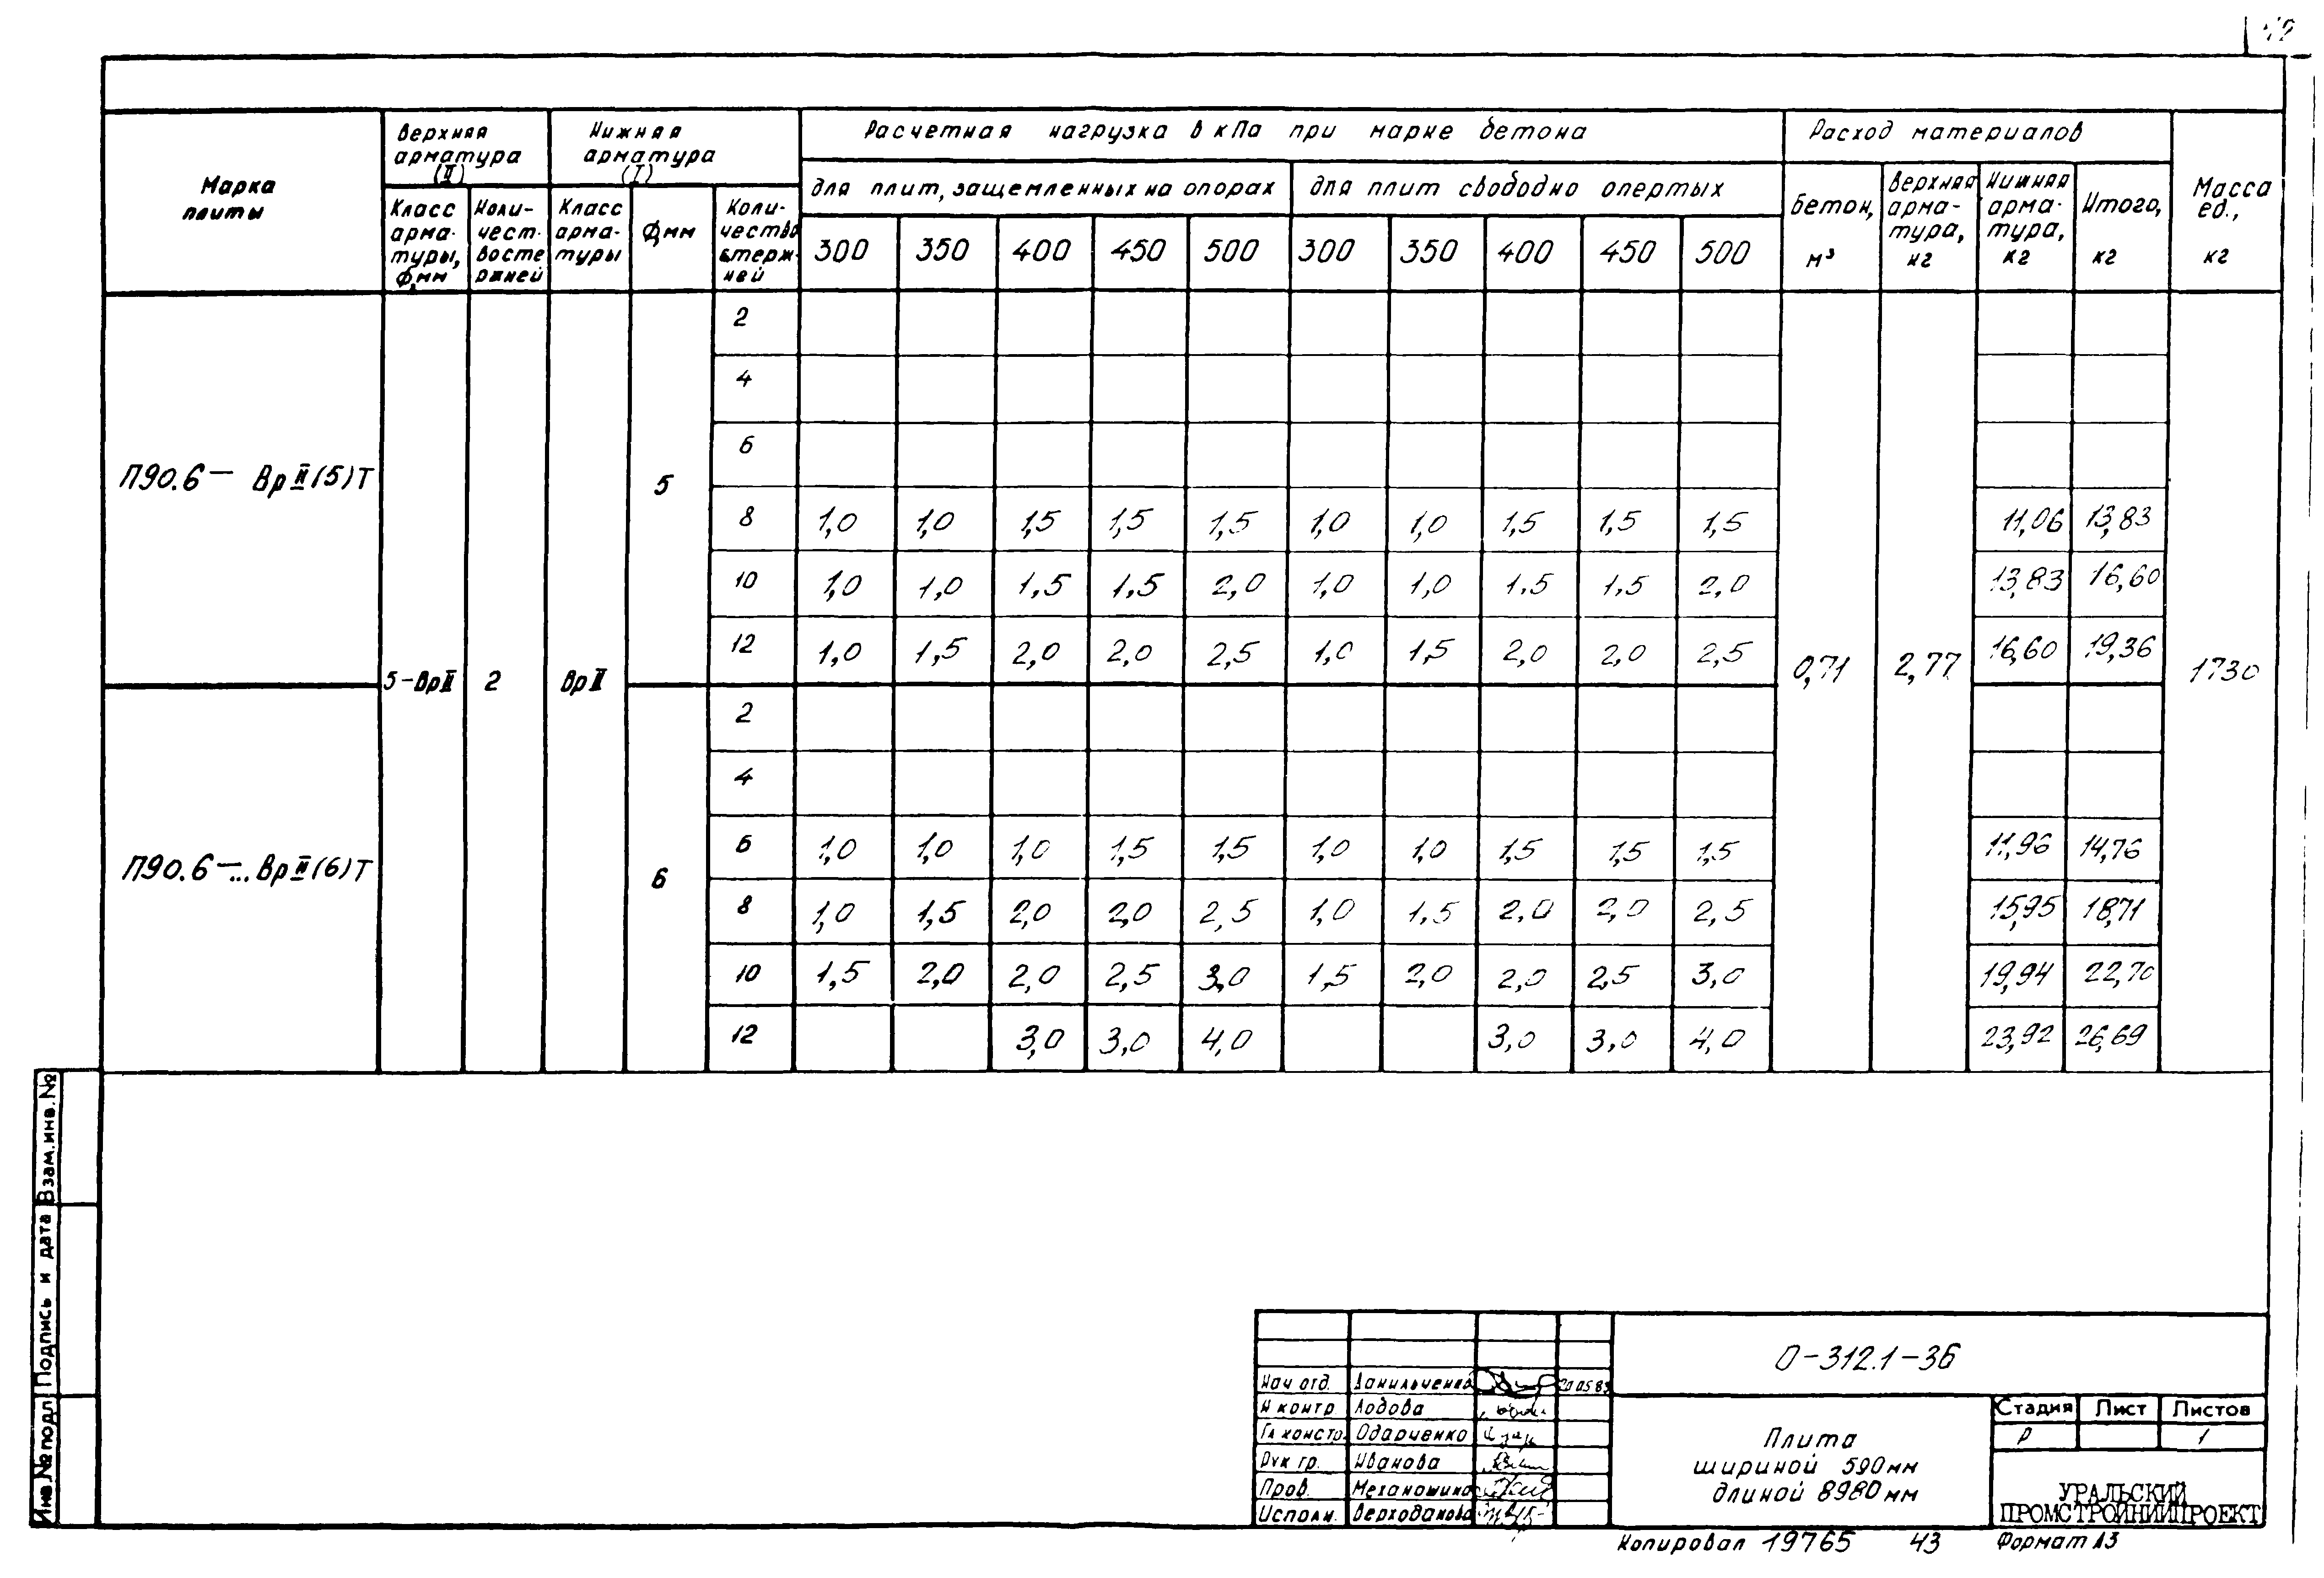 42
Марка плиты
Верхняя арматура (II)
Нижняя арматура (I)
Расчетная нагрузка в кПа при марке бетона
Расход материалов
Масса ед., кг
для плит, защемленных на опорах
для плит свободно опертых
Класс арма- туры, ф,мм
Коли- чест- во сте ржней
Класс арма- туры
ф,мм
Коли- чество стерж- ней
300 350 400 450 500 300 350 400 450 500
Бетон, м³
Верхняя арма- тура, кг
Нижняя арма- тура, кг
Итого, кг
П90.6— ВрII(5)Т
5-ВрII 2 ВрII 5
2
4
6
8 1,0 1,0 1,5 1,5 1,5 1,0 1,0 1,5 1,5 1,5 11,06 13,83
10 1,0 1,0 1,5 1,5 2,0 1,0 1,0 1,5 1,5 2,0 13,83 16,60
12 1,0 1,5 2,0 2,0 2,5 1,0 1,5 2,0 2,0 2,5 16,60 19,36
0,71 2,77 1730
П90.6—...ВрII(6)Т
6
2
4
6 1,0 1,0 1,0 1,5 1,5 1,0 1,0 1,5 1,5 1,5 11,96 14,76
8 1,0 1,5 2,0 2,0 2,5 1,0 1,5 2,0 2,0 2,5 15,95 18,71
10 1,5 2,0 2,0 2,5 3,0 1,5 2,0 2,0 2,5 3,0 19,94 22,70
12 3,0 3,0 4,0 3,0 3,0 4,0 23,92 26,69
Инв.№подл Подпись и дата Взам.инв.№
О-312.1-36
Нач отд. Данильченко 20 05 83
Н контр Лодова
Гл констр. Одарченко
Рук гр. Иванова
Пров. Механошина
Исполн. Верходанова
Плита
шириной 590мм
длиной 8980мм
Стадия Лист Листов
Р 1
УРАЛЬСКИЙ
ПРОМСТРОЙНИИПРОЕКТ
Копировал 19765 43 Формат А3